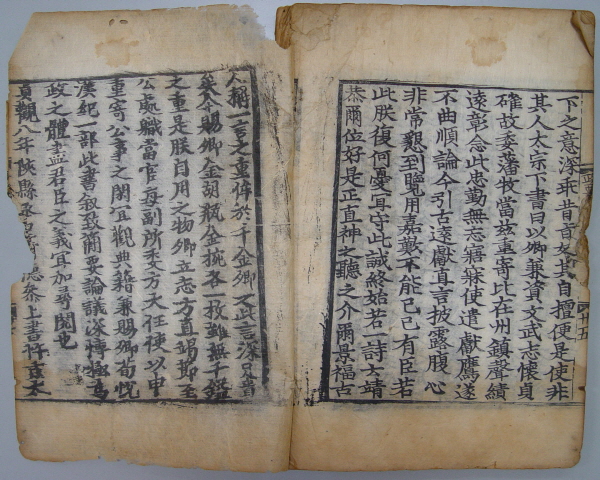 下之意深乖昔旨如其自擅便是使非
其人太宗下書曰以卿兼資文武志懷貞
確故委藩牧當玆重寄比在州鎮聲績
遠彰念此忠勤無忘寤寐使遣獻鷹遂
不曲順論今引古遠獻直言披露腹心
非常懇到覽用嘉歎不能已已有臣若
此朕復何憂宜守此誠終始若一詩云靖
恭爾位好是正直神之聽之介爾景福古
人稱一言之重侔於千金卿之此言深足貴
矣今賜卿金胡甁金椀各一枚雖無千鎰
之重是朕自用之物卿立志方直竭節至
公處職當官每副所委方大任使以申
重寄公事之閑宜觀典籍兼賜卿荀悅
漢紀一部此書敘致簡要論議深博極爲
政之體盡君臣之義宜加尋閱也
貞觀八年陝縣丞皇甫德參上書忤旨太
十五